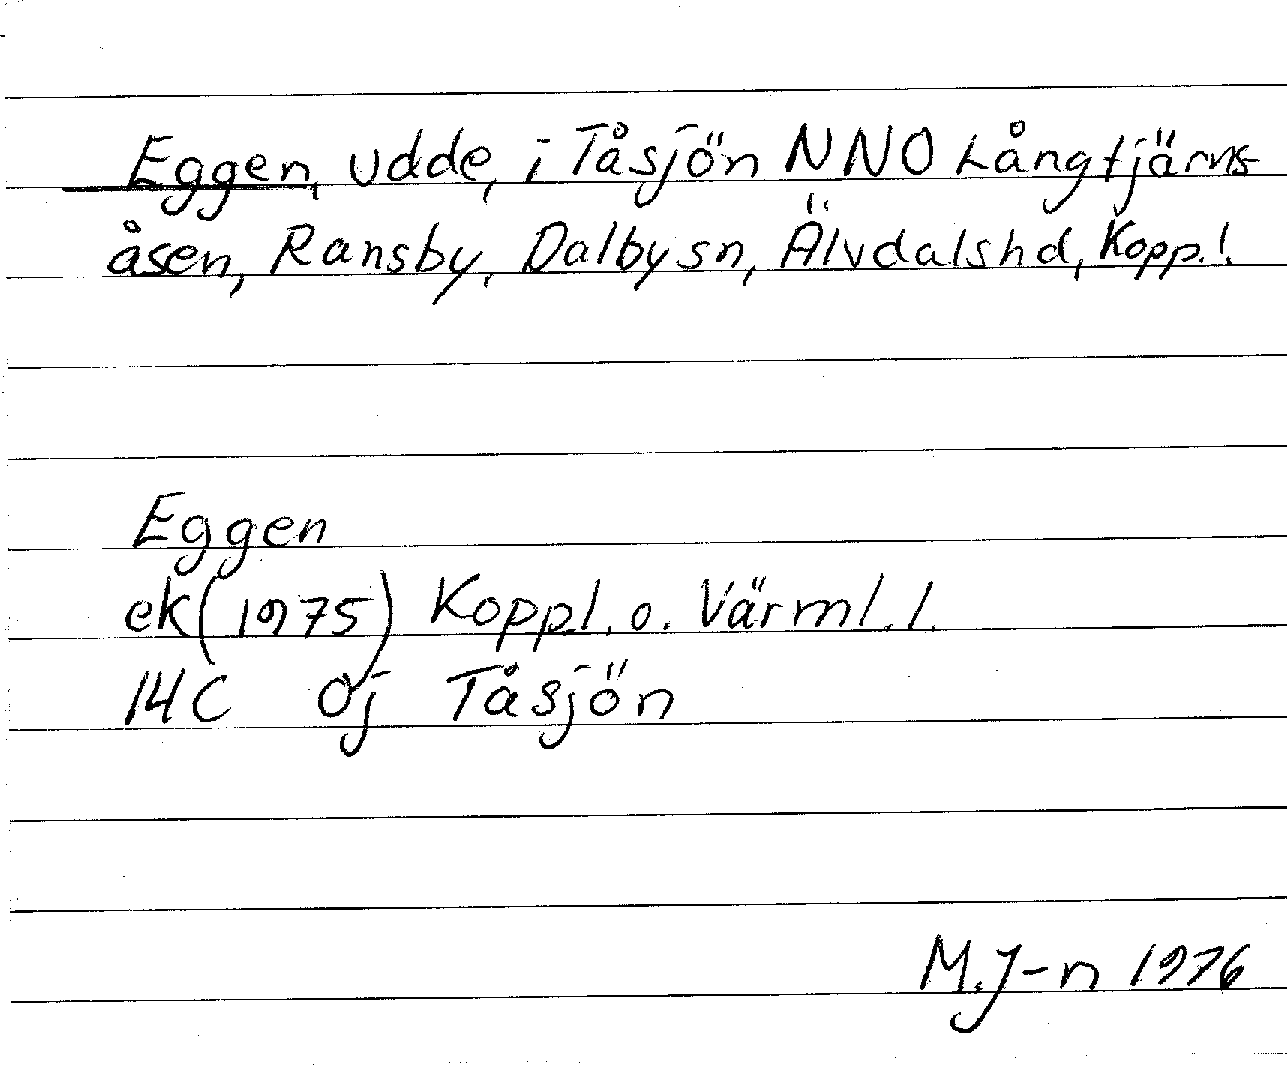 Eggen, udde, i Tåsjön NNO Långtjärns
åsen, Ransby, Dalby sn, Älvdals hd, Kopp.l.
Eggen
ek(1975) Koppl. o. Värml. l.
14C Öj Tåsjön
M.J-n 1976